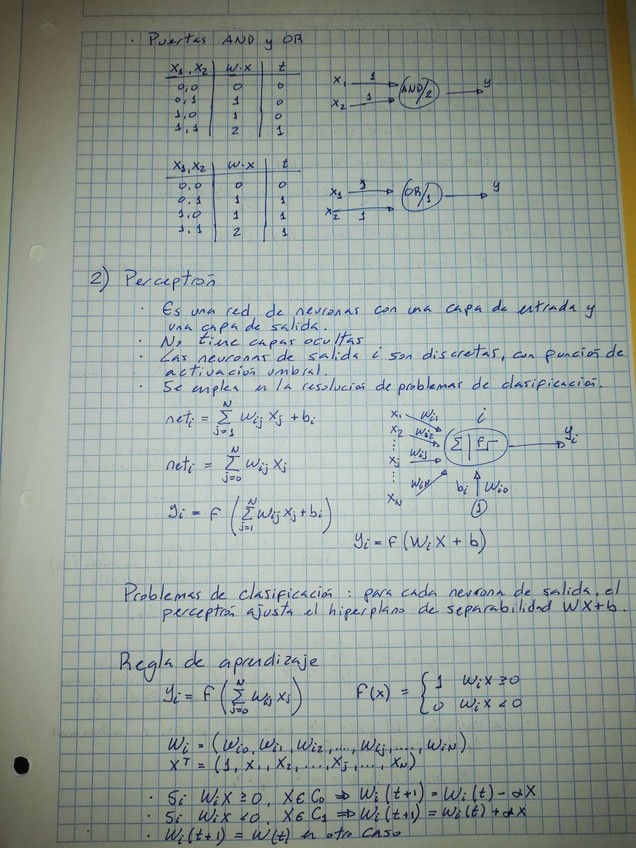 · Puertas AND y OR
X₁,X₂ | W·X | t
0,0 | 0 | 0
0,1 | 1 | 0
1,0 | 1 | 0
1,1 | 2 | 1
X₁ 1
X₂ 1
AND/2
y
X₁,X₂ | W·X | t
0,0 | 0 | 0
0,1 | 1 | 1
1,0 | 1 | 1
1,1 | 2 | 1
X₁ 1
X₂ 1
OR/1
y
2) Perceptrón
· Es una red de neuronas con una capa de entrada y
una capa de salida.
· No tiene capas ocultas
· Las neuronas de salida i son discretas, con función de
activación umbral.
· Se emplea en la resolución de problemas de clasificación.
netᵢ = Σ_{j=1}^{N} Wᵢⱼ Xⱼ + bᵢ
netᵢ = Σ_{j=0}^{N} Wᵢⱼ Xⱼ
yᵢ = F (Σ_{j=1}^{N} Wᵢⱼ Xⱼ + bᵢ)
X₁ Wᵢ₁
X₂ Wᵢ₂
⋮
Xⱼ Wᵢⱼ
⋮
X_N Wᵢ_N
i
Σ | F
yᵢ
bᵢ Wᵢ₀
1
yᵢ = F (WᵢX + b)
Problemas de clasificación : para cada neurona de salida, el
perceptrón ajusta el hiperplano de separabilidad WX+b.
Regla de aprendizaje
yᵢ = F (Σ_{j=0}^{N} Wᵢⱼ Xⱼ)
F(x) = { 1 WᵢX ≥ 0
0 WᵢX < 0
Wᵢ = (Wᵢ₀, Wᵢ₁, Wᵢ₂, ..., Wᵢⱼ, ..., Wᵢ_N)
Xᵀ = (1, X₁, X₂, ..., Xⱼ, ..., X_N)
· Si WᵢX ≥ 0, X ∈ C₀ ⇒ Wᵢ(t+1) = Wᵢ(t) - αX
· Si WᵢX < 0, X ∈ C₁ ⇒ Wᵢ(t+1) = Wᵢ(t) + αX
· Wᵢ(t+1) = W(t) en otro caso